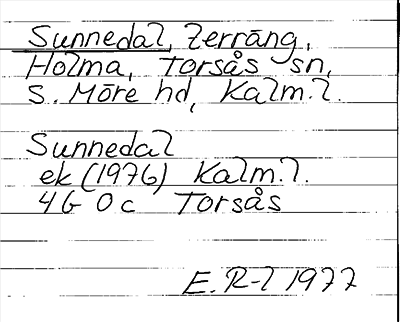 Sunnedal, Terräng,
Holma, Torsås sn,
S. Möre hd, Kalm. l.
Sunnedal
ek (1976) Kalm. l.
4G 0c Torsås
E. R-l 1977